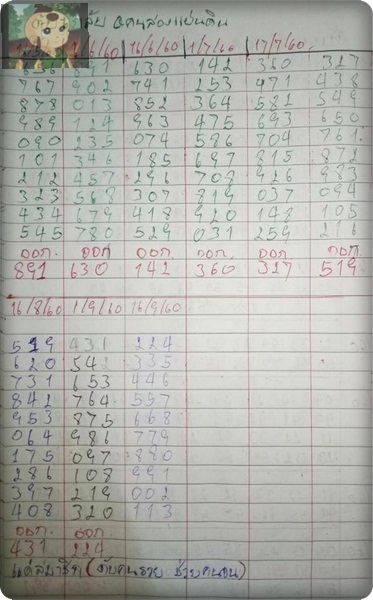 /6/60 16/6/60 1/7/60 17/7/60
656 891 630 142 360 327
767 902 741 253 471 438
878 013 852 364 582 549
989 124 963 475 693 650
090 235 074 586 704 761
101 346 185 697 815 872
212 457 296 708 926 983
323 568 307 819 037 094
434 679 418 920 148 105
545 780 529 031 259 216
ออก. ออก ออก. ออก. ออก ออก.
891 630 142 360 327 519
16/8/60 1/9/60 16/9/60
519 431 224
620 542 335
731 653 446
842 764 557
953 875 668
064 986 779
175 097 880
286 108 991
397 219 002
408 320 113
ออก. ออก
431 224